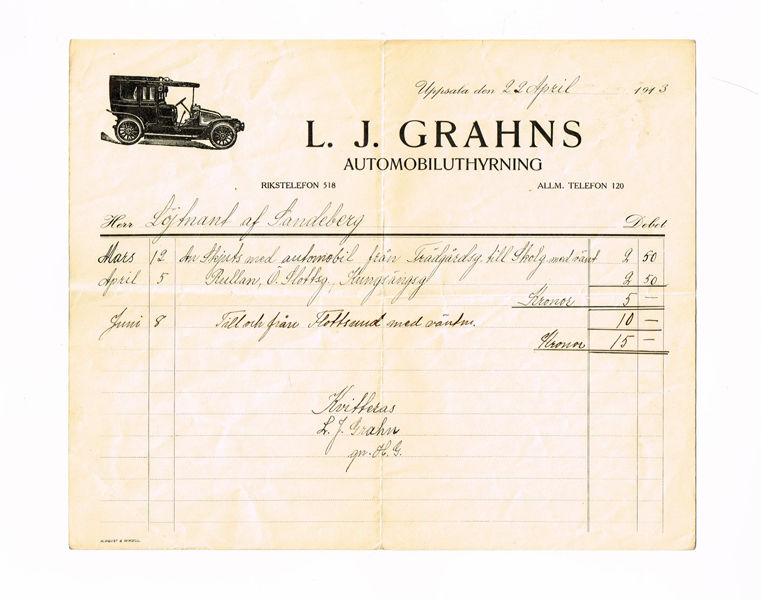 Uppsala den 22 April 1913
L. J. GRAHNS
AUTOMOBILUTHYRNING
RIKSTELEFON 518 ALLM. TELEFON 120
Herr Löjtnant af Sandeberg Debet
Mars 12 An Skjuts med automobil från Trädgårdsg. till Skolg. med vänt 2 50
April 5 Rullan, Ö. Slottsg., Kungsängsg 2 50
Kronor 5 —
Juni 8 Till och från Flottsund med väntn. 10 —
Kronor 15 —
Kvitteras
L. J. Grahn
gm. H. G.